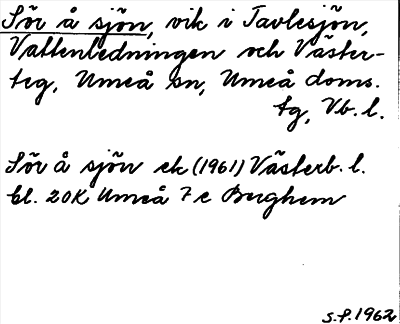 Sör å sjön, vik i Tavlesjön,
Vattenledningen och Väster-
teg, Umeå sn, Umeå doms.
tg, Vb. l.
Sör å sjön ek (1961) Västerb. l.
bl. 20K Umeå 7 c Berghem
S.f. 1962